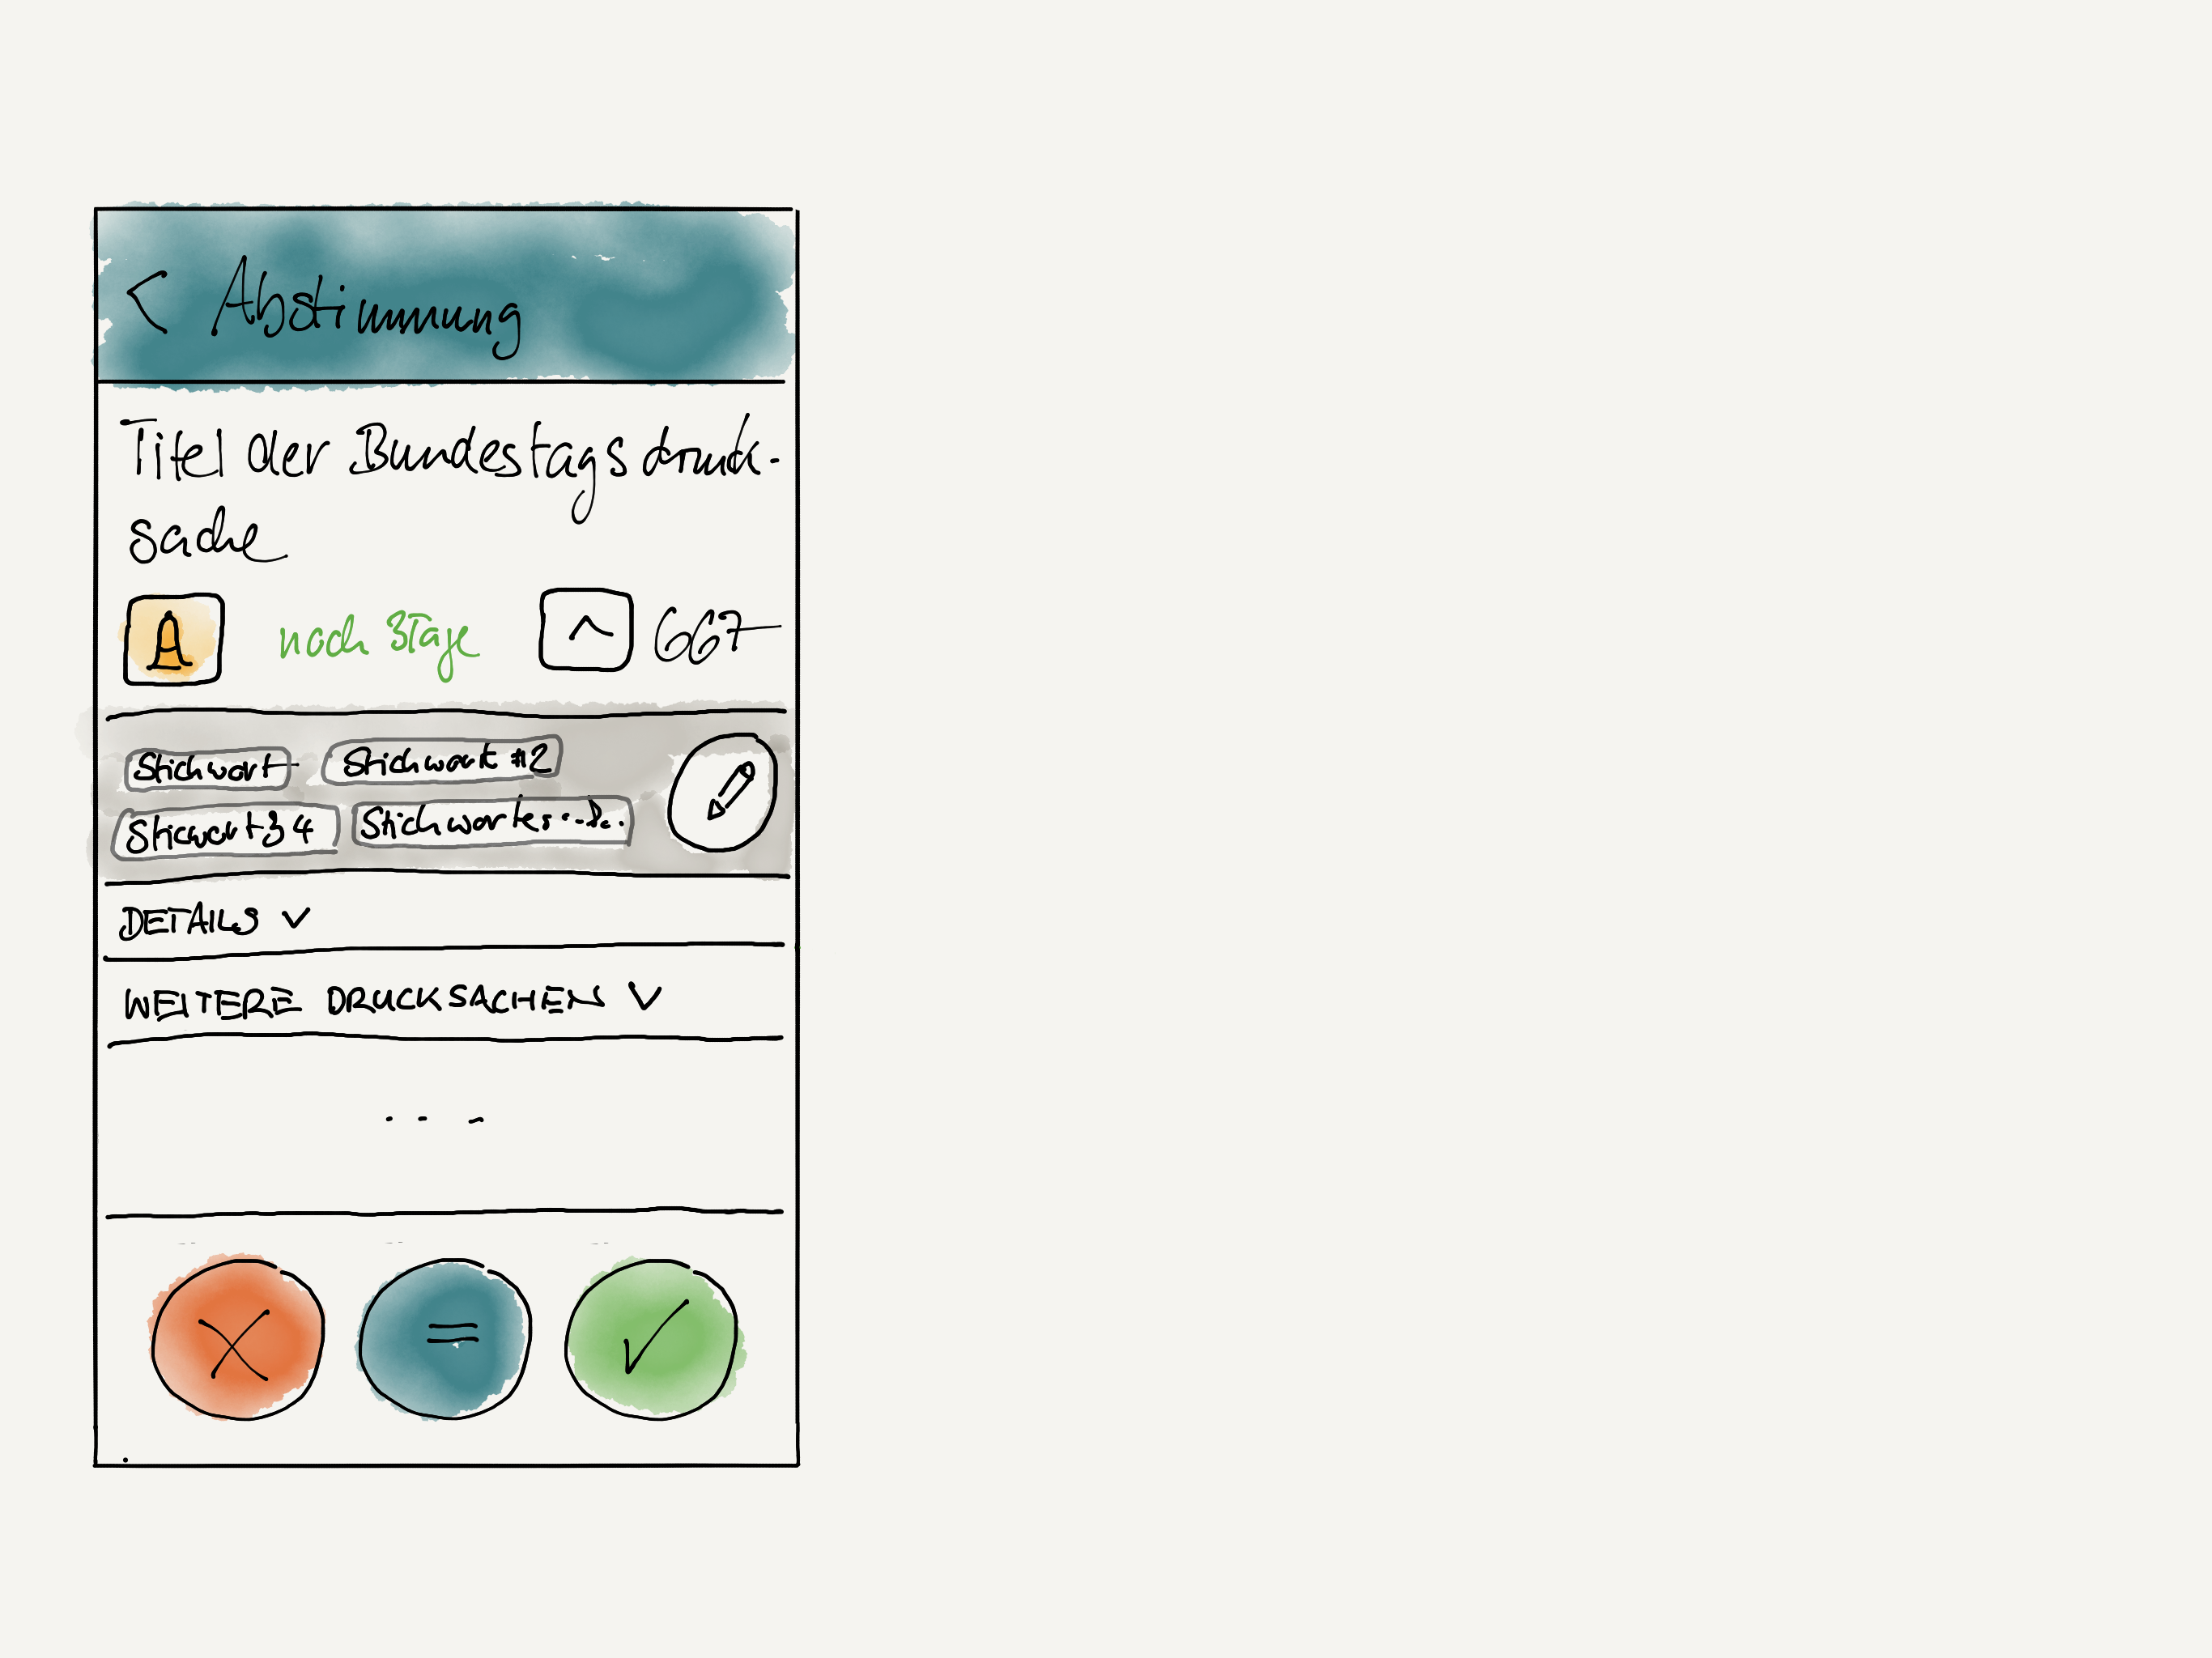 < Abstimmung
Titel der Bundestagsdruck-
sache
noch 3Tage ^ 667
Stichwort Stichwort #2
Sticwort34 Stichwortes...
DETAILS ∨
WEITERE DRUCKSACHEN ∨
...